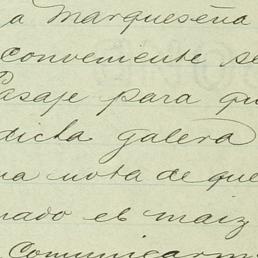 a Marqueseña
conveniente se
Pasaje para qu
dicha galera
na nota de que
nado el maiz
comunicarm